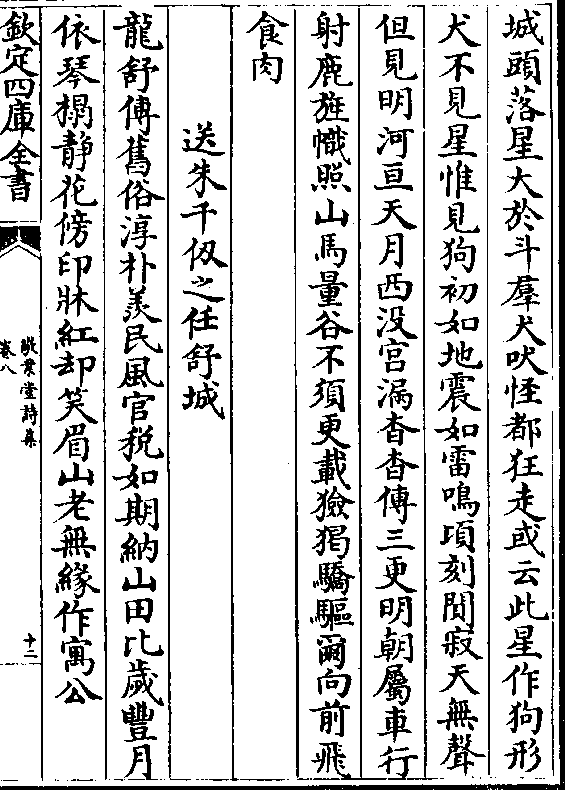 城頭落星大於斗羣犬吠怪都狂走或云此星作狗形
犬不見星惟見狗初如地震如雷鳴頃刻間寂天無聲
但見明河亘天月西没宫漏杳杳傳三更明朝屬車行
射鹿旌幟照山馬量谷不須更載獫猲驕驅爾向前飛
食肉
送朱千仭之任舒城
龍舒傅舊俗淳朴羡民風官税如期納山田比歲豐月
依琴榻静花傍印牀紅却笑眉山老無緣作寓公
欽定四庫全書
敬業堂詩集
卷八
十二